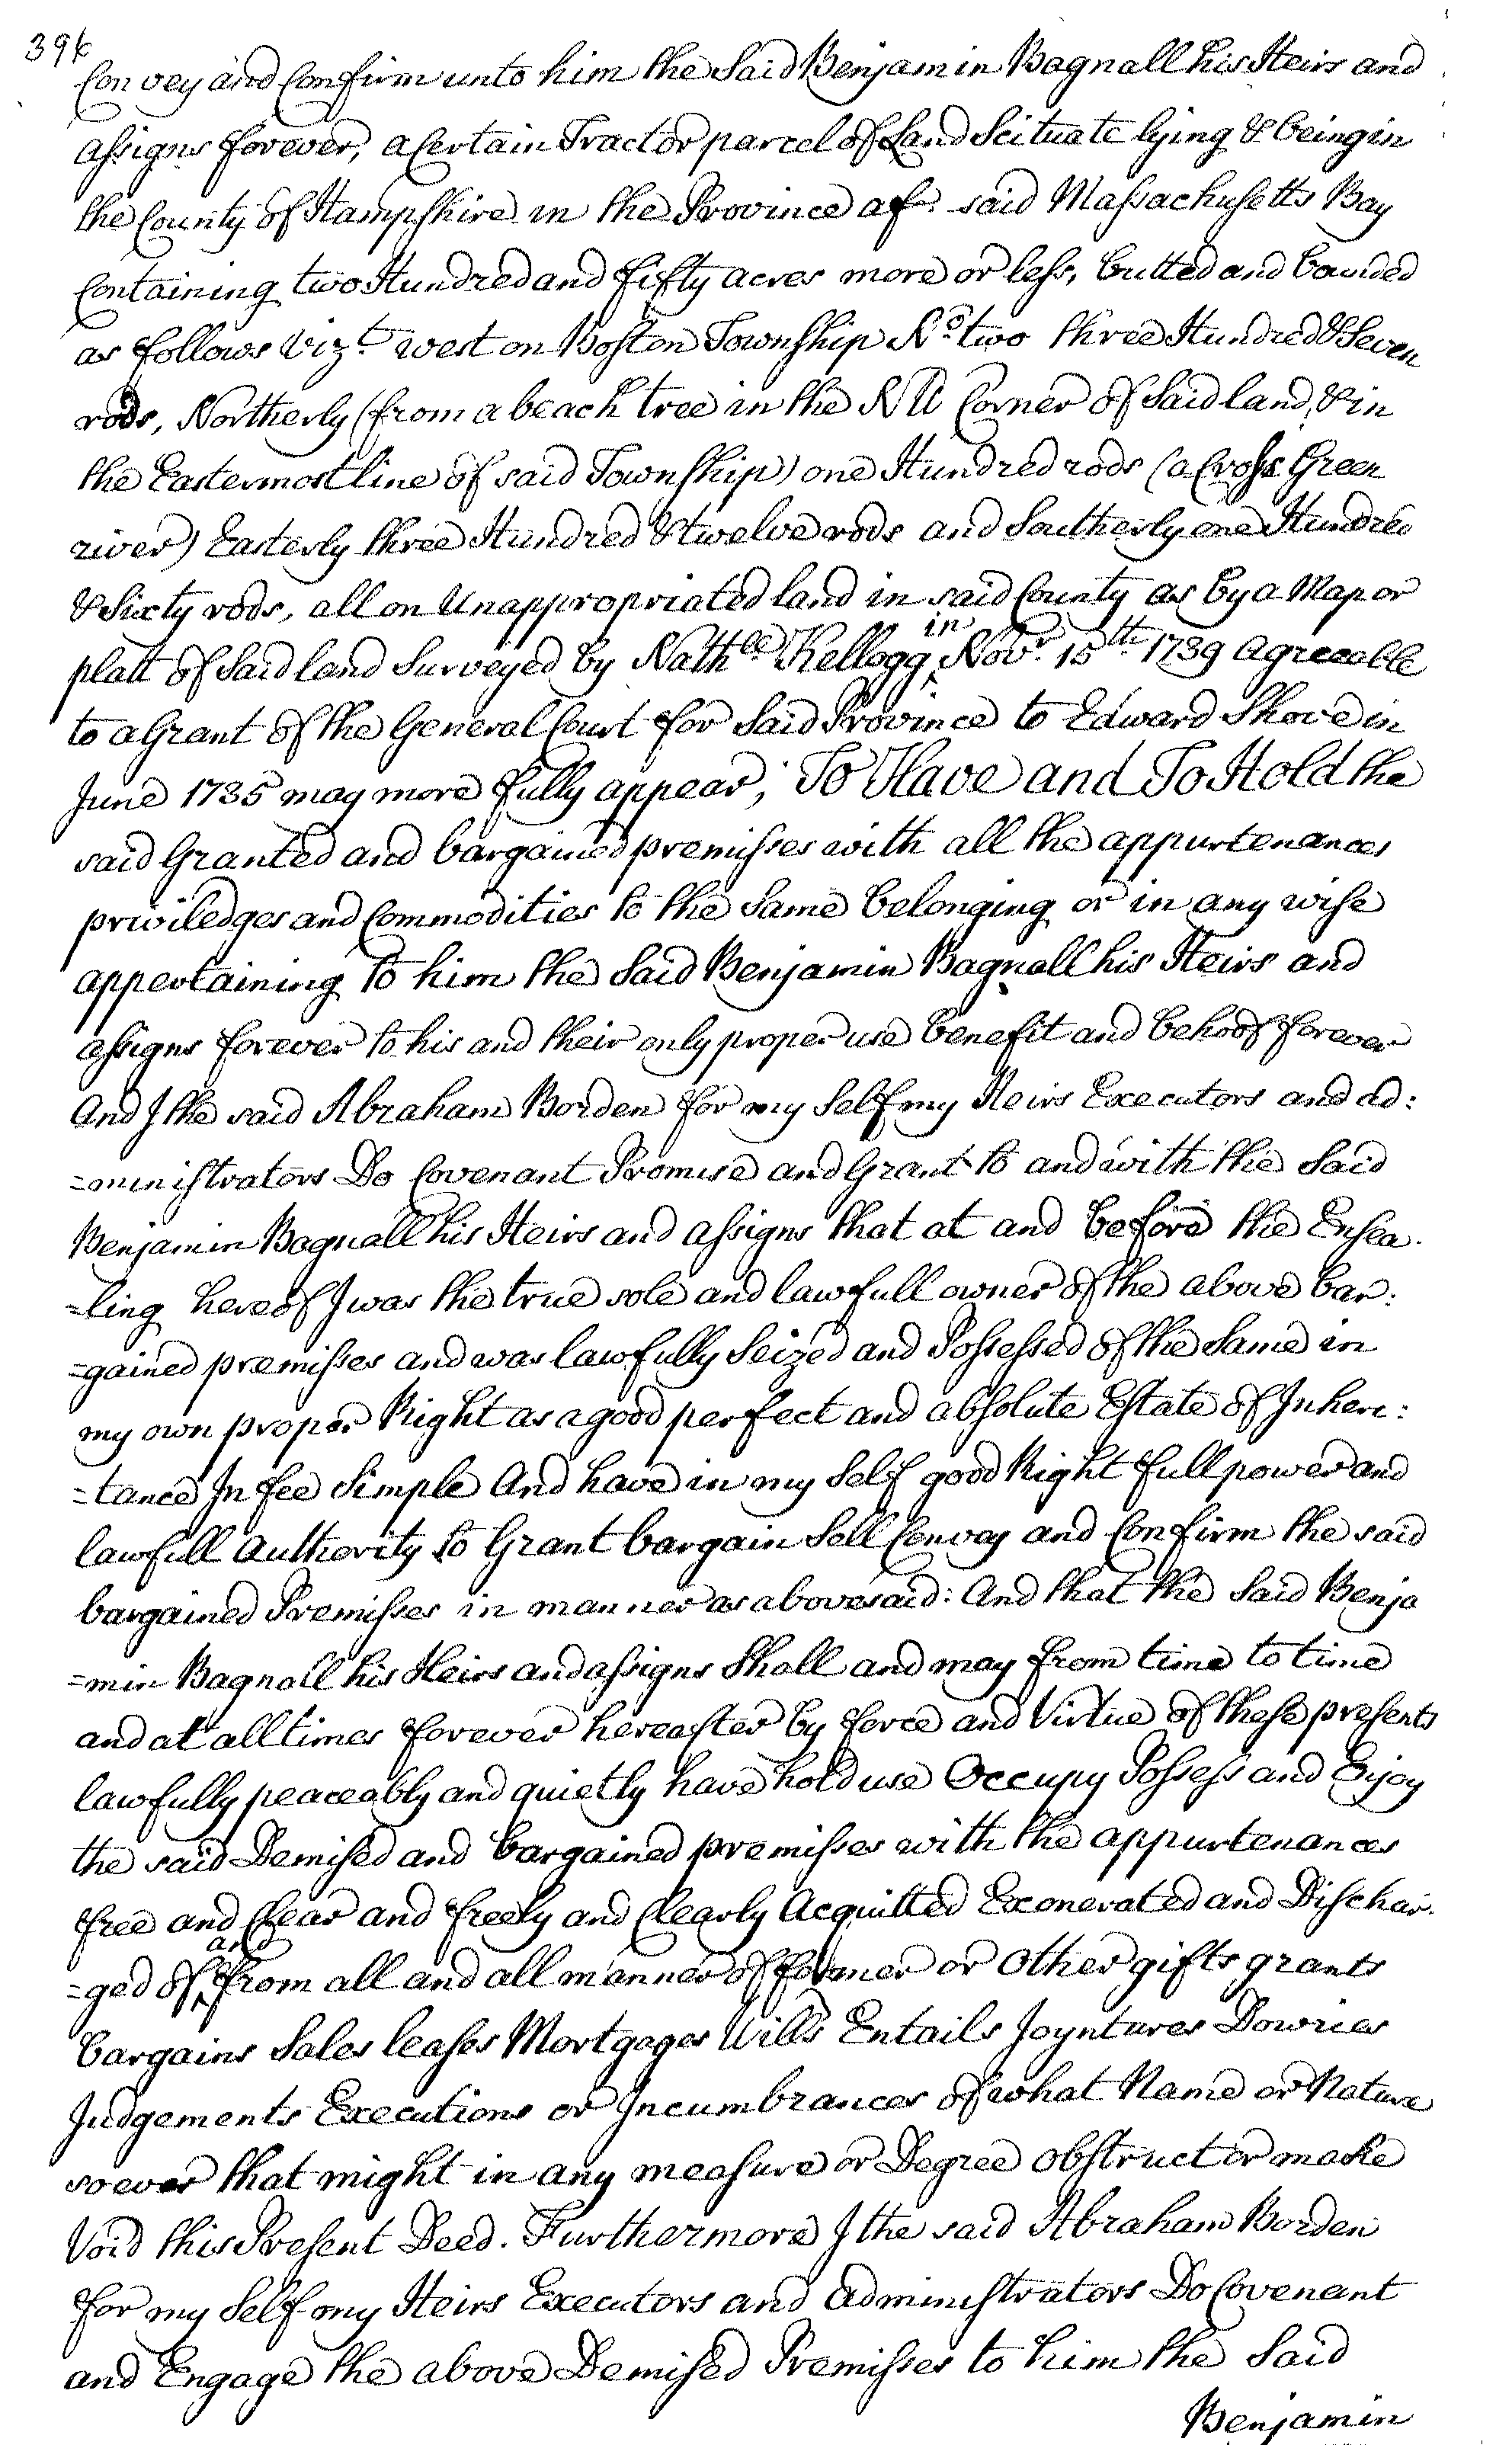 396
Convey and Confirm unto him the Said Benjamin Bagnall his Heirs and
assigns forever, a Certain Tract or parcel of Land Scituate lying & being in
the County of Hampshire in the Province afo. said Massachusetts Bay
Containing two Hundred and fifty acres more or less, butted and bounded
as follows Vizt. west on Boston Township No. two three Hundred & Seven
rods, Northerly (from a beach tree in the NW Corner of Said land, & in
the Eastermost line of said Township) one Hundred rods (a Cross Green
river) Easterly three Hundred & twelve rods and Southerly one Hundred
& Sixty rods, all on Unappropriated land in said County as by a Map or
platt of Said land Surveyed by Nathll. Kellogg in Novr. 15th. 1739 agreeable
to a Grant of the General Court for Said Province to Edward Shove in
June 1735 may more fully appear; To Have and To Hold the
said Granted and bargained premisses with all the appurtenances
priviledges and Commodities to the Same belonging or in any wise
appertaining to him the Said Benjamin Bagnall his Heirs and
assigns forever to his and their only proper use benefit and behoof forever
And I the said Abraham Borden for my Self my Heirs Executors and ad:
=ministrators Do Covenant Promise and Grant to and with the Said
Benjamin Bagnall his Heirs and assigns that at and before the Ensea.
=ling hereof I was the true sole and lawfull owner of the above bar:
=gained premisses and was lawfully Seized and Possessed of the Same in
my own proper Right as a good perfect and absolute Estate of Inheri:
=tance In fee Simple And have in my Self good Right full power and
lawfull Authority to Grant bargain Sell Convey and Confirm the said
bargained Premisses in manner as abovesaid: And that the Said Benja
=min Bagnall his Heirs and assigns Shall and may from time to time
and at all times forever hereafter by force and Virtue of these presents
lawfully peaceably and quietly have hold use Occupy Possess and Enjoy
the said Demised and bargained premisses with the appurtenances
free and Clear and freely and Clearly Acquitted Exonerated and Dischar.
=ged of and from all and all manner of former or other gifts grants
bargains Sales leases Mortgages Wills Entails Joyntures Dowries
Judgements Executions or Incumbrances of what Name or Nature
soever that might in any measure or Degree obstruct or make
Void this Present Deed. Furthermore I the said Abraham Borden
for my Self my Heirs Executors and Administrators Do Covenant
and Engage the above Demised Premisses to him the Said
Benjamin